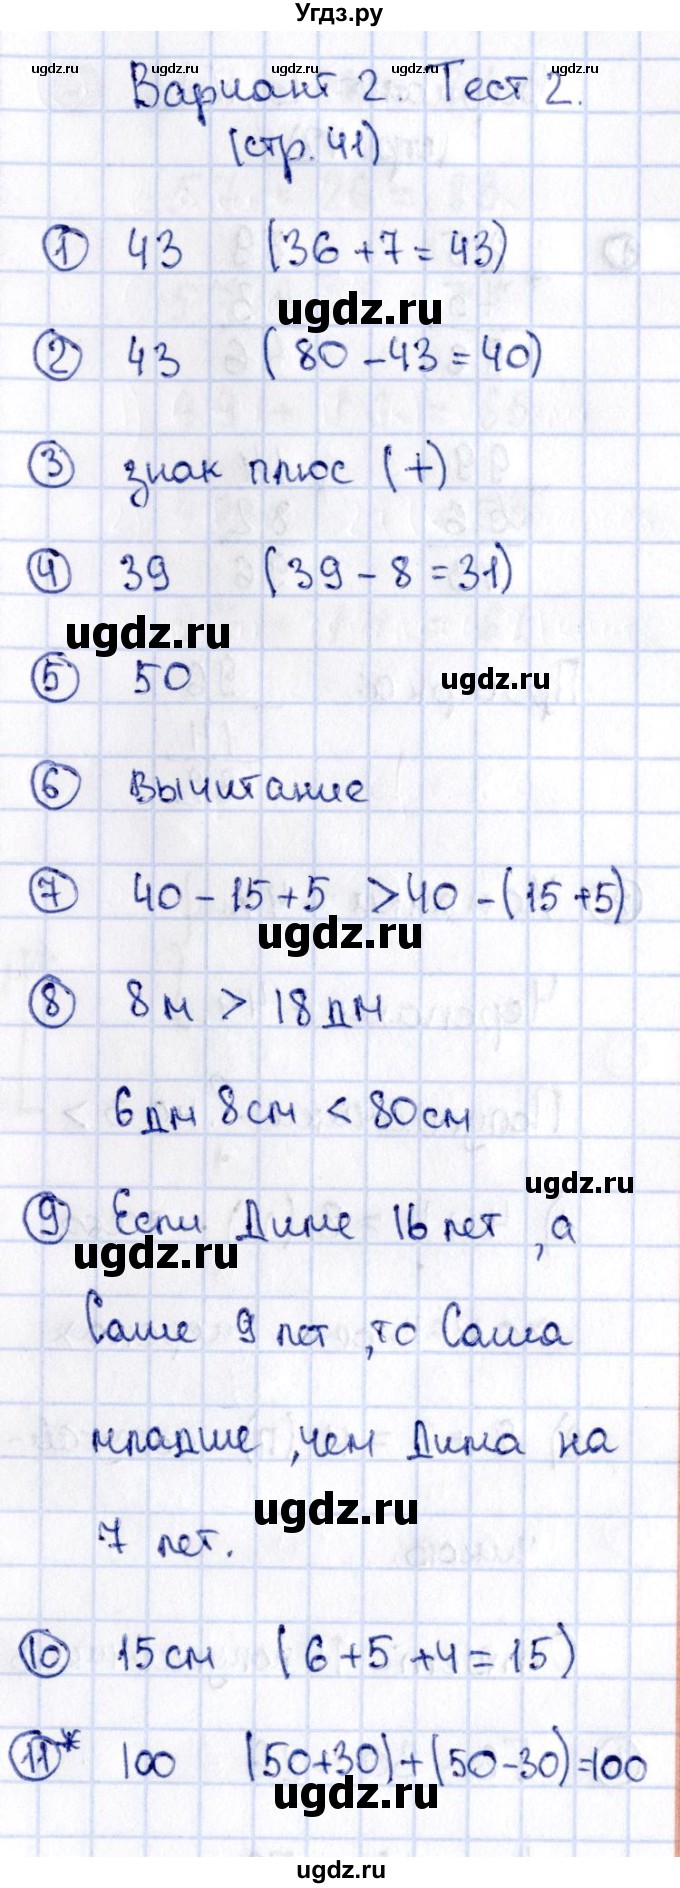 Угдз.ру
ugdz.ru ugdz.ru ugdz.ru ugdz.ru
Вариант 2. Тест 2.
(стр. 41)
1 43 (36 + 7 = 43)
ugdz.ru
2 43 (80 - 43 = 40)
3 знак плюс (+)
4 39 (39 - 8 = 31)
ugdz.ru
5 50 ugdz.ru
6 вычитание
7 40 - 15 + 5 > 40 - (15 + 5)
ugdz.ru
8 8 м > 18 дм
6 дм 8 см < 80 см
ugdz.ru
9 Если Диме 16 лет, а
ugdz.ru
Саше 9 лет, то Саша
младше, чем Дима на
ugdz.ru
7 лет.
10 15 см (6 + 5 + 4 = 15)
11* 100 (50+30)+(50-30)=100
ugdz.ru
ugdz.ru